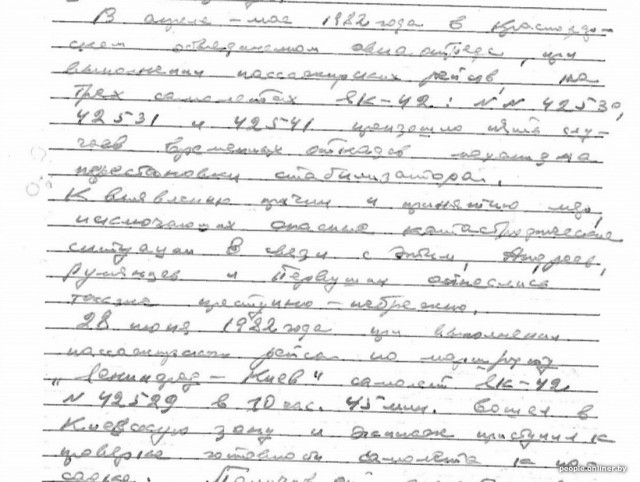 В апреле – мае 1982 года в Краснодар-
ском объединенном авиаотряде, при
выполнении пассажирских рейсов, на
трех самолетах ЯК-42: NN 42530,
42531 и 42541 произошло пять слу-
чаев временных отказов механизма
перестановки стабилизатора.
К выявлению причин и принятию мер,
исключающих опасные катастрофические
ситуации в связи с этим, Андреев,
Румянцев и Первушин отнеслись
также преступно-небрежно.
28 июня 1982 года при выполнении
пассажирского рейса по маршруту
„Ленинград – Киев" самолет ЯК-42
N 42529 в 10 час. 45 мин. вошел в
Киевскую зону и экипаж приступил к
проверке готовности самолета к по-
садке.
people.onliner.by